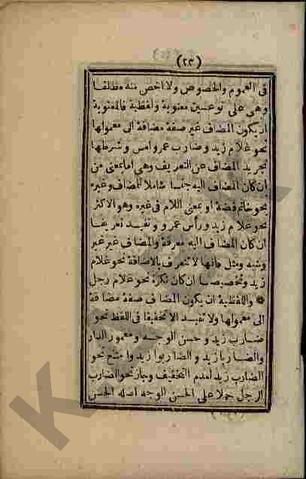 (٢٣)
فى العموم والخصوص ولا اخص منه مطلقا
وهى على نوعين معنوية ولفظية فالمعنوية
ان يكون المضاف غير صفة مضافة الى معمولها
نحو غلام زيد وضارب عمرو امس وشرطها
تجريد المضاف عن التعريف وهى اما بمعنى من
ان كان المضاف اليه جنسا شاملا للمضاف وغيره
نحو خاتم فضة او بمعنى اللام فى غيره وهو الاكثر
نحو غلام زيد ورأس عمرو وتفيد تعريفا
ان كان المضاف اليه معرفة والمضاف غير غير
وشبه ومثل فانها لا تتعرف بالاضافة نحو غلام
زيد وتخصيصا ان كان نكرة نحو غلام رجل
واللفظية ان يكون المضاف صفة مضافة
الى معمولها ولا تفيد الا تخفيفا فى اللفظ نحو
ضارب زيد وحسن الوجه ومعمور الدار
والضاربا زيد والضاربوا زيد وامتنع نحو
الضارب زيد لعدم التخفيف وجاز نحو الضارب
الرجل حملا على الحسن الوجه اصله الحسن